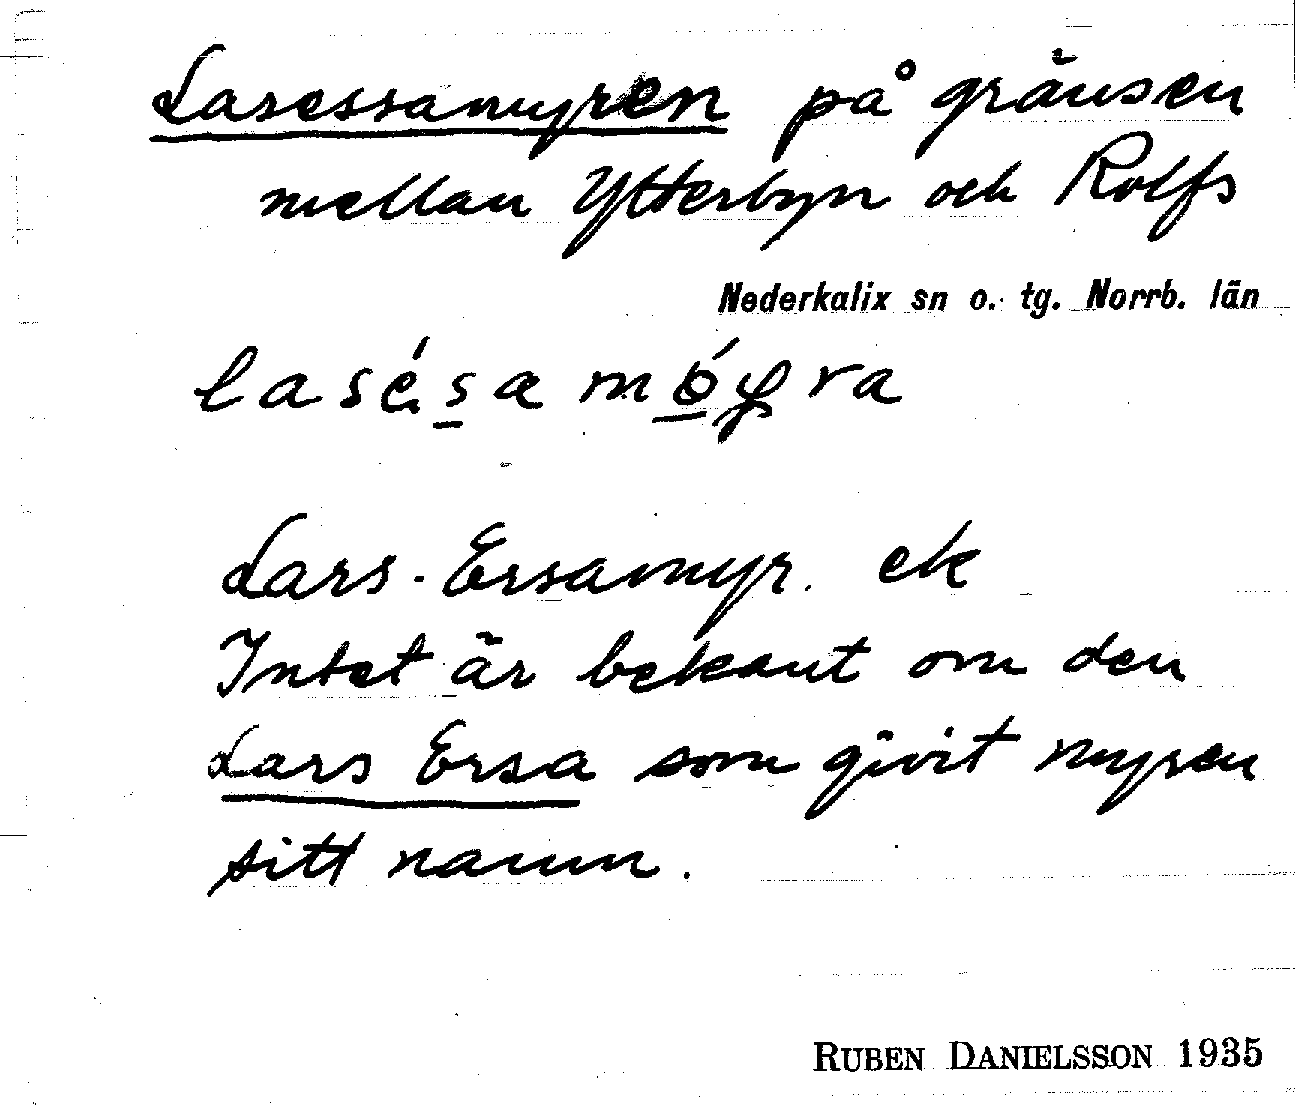 Lasessamyren på gränsen
mellan Ytterbyn och Rolfs
Nederkalix sn o. tg. Norrb. län
lasésa móyra
Lars-Ersamyr. ek
Intet är bekant om den
Lars Ersa som givit myren
sitt namn.
RUBEN DANIELSSON 1935